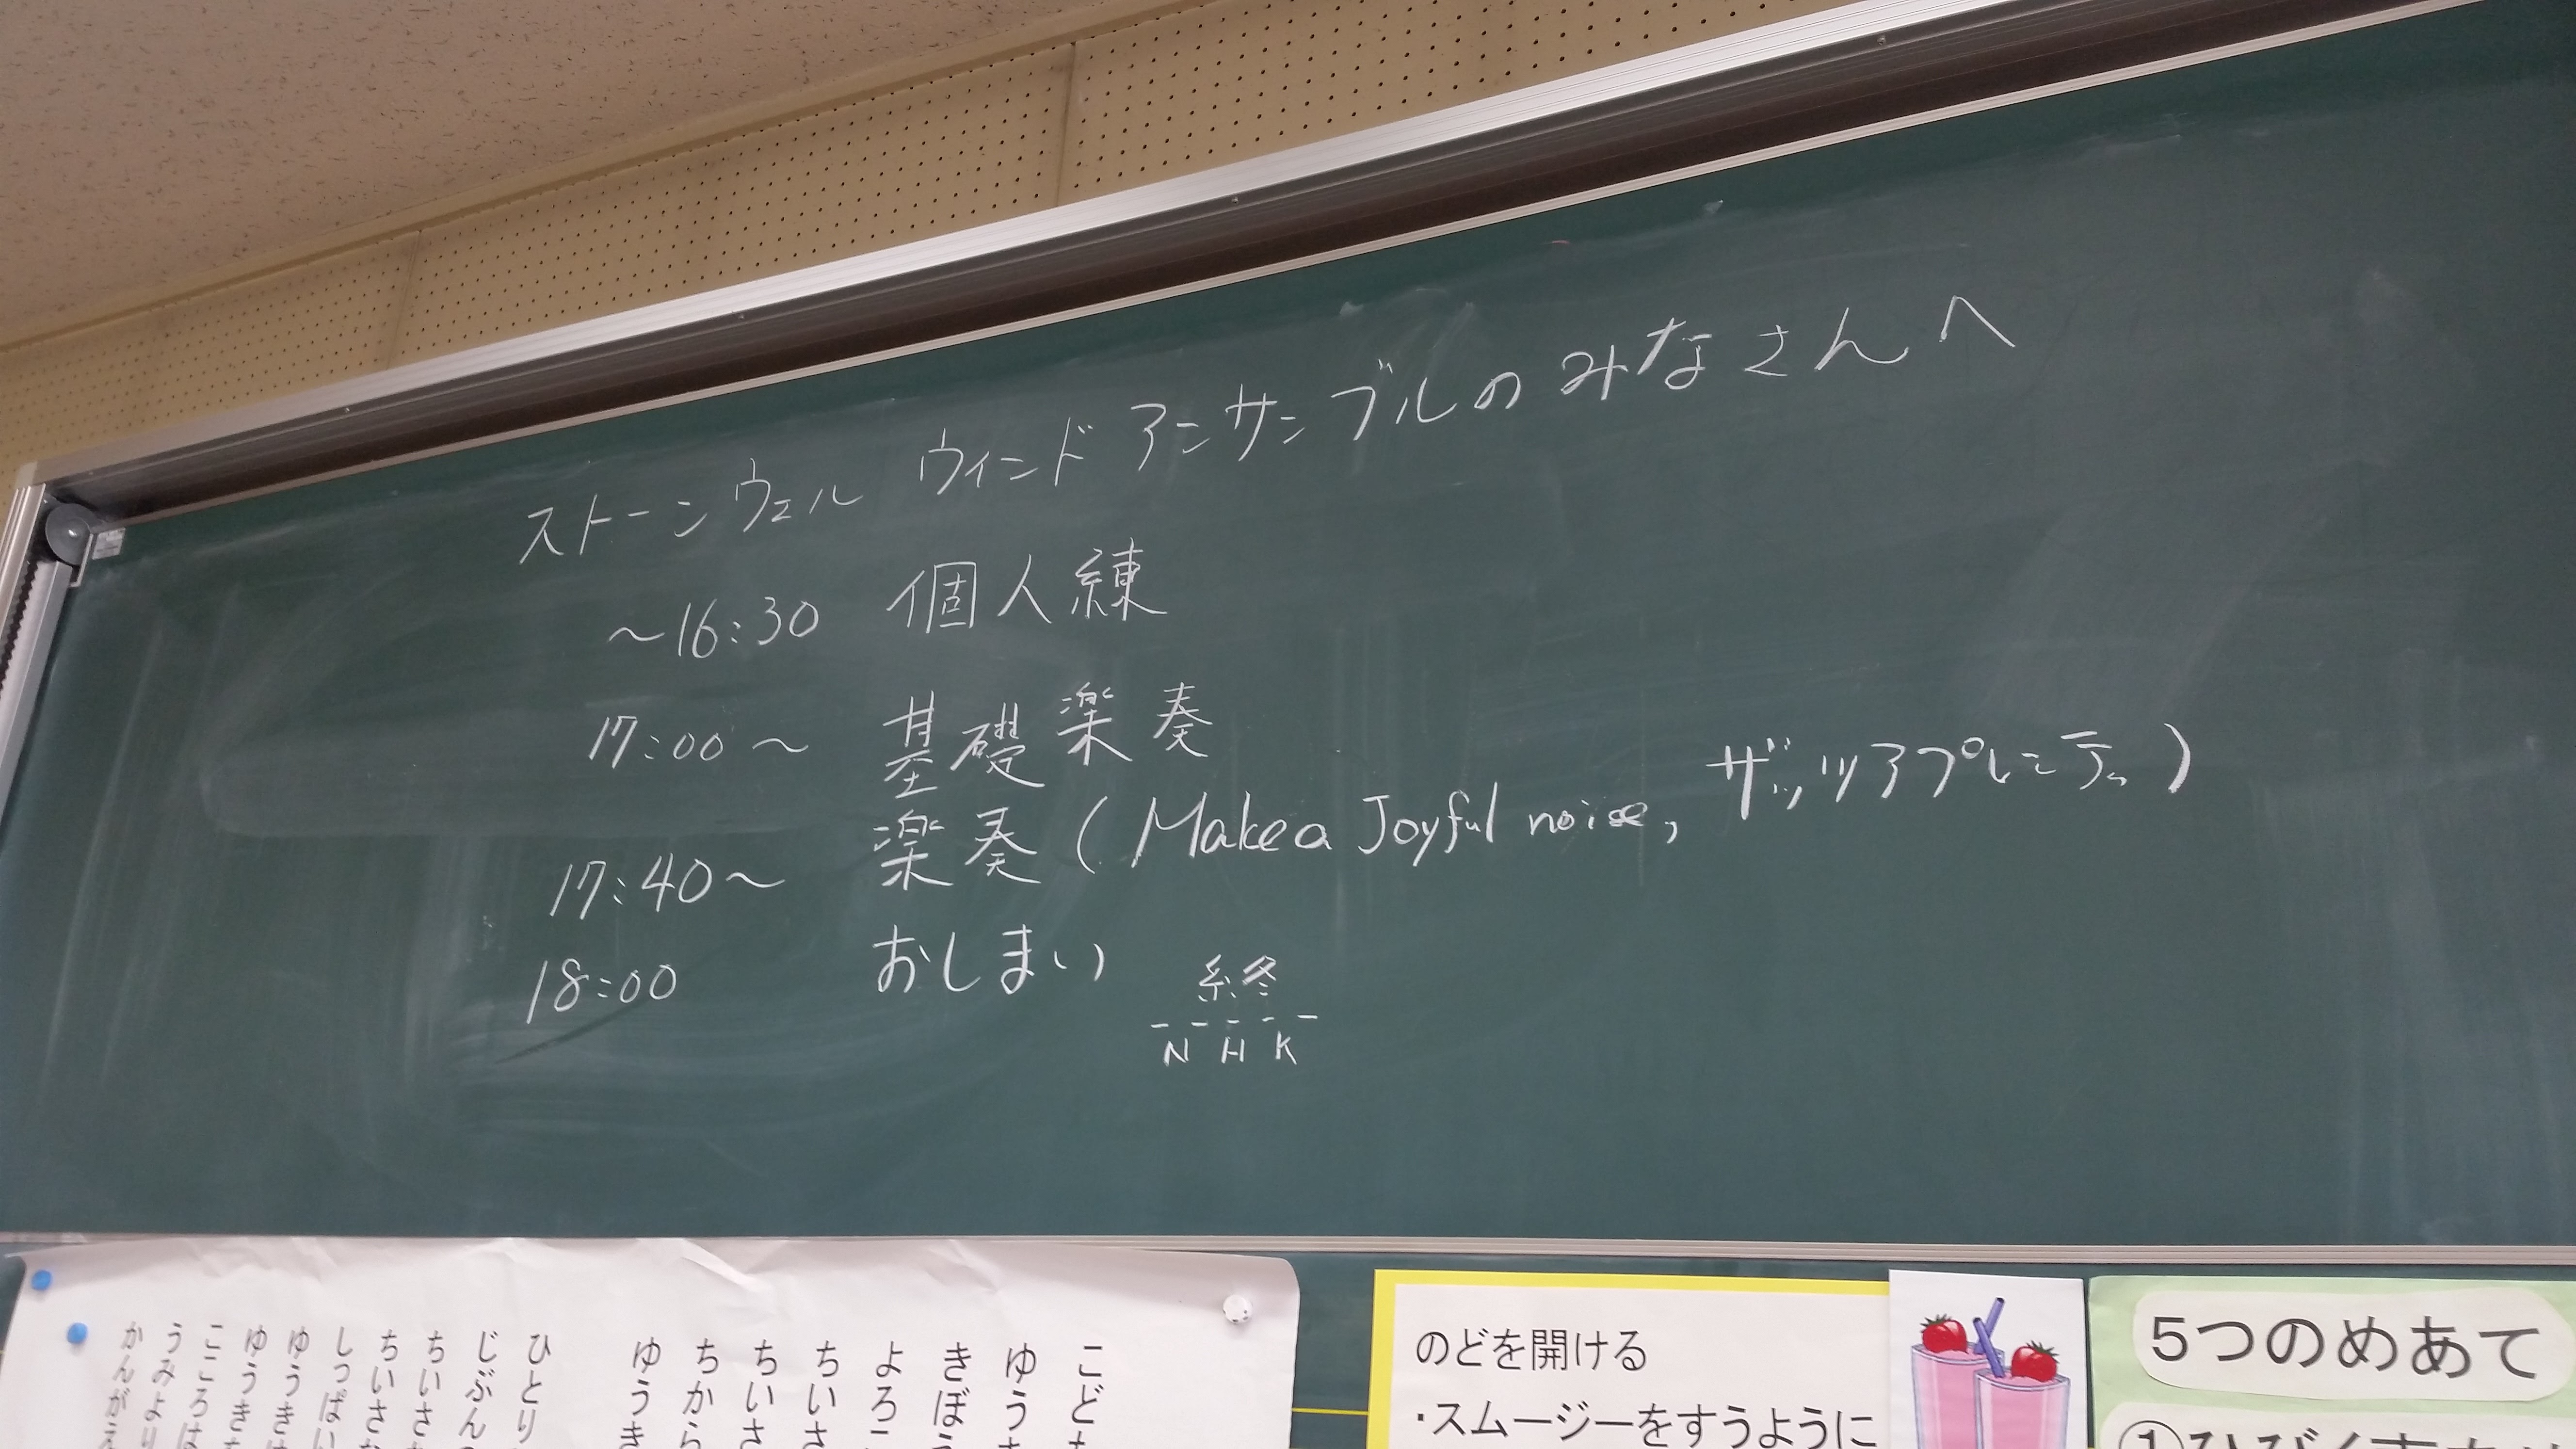 ストーンウェル ウィンド アンサンブルのみなさんへ
〜16:30 個人練
17:00〜 基礎楽奏
17:40〜 楽奏(Make a Joyful noise, ザッツアプレンティ)
18:00 おしまい 終
NHK
こど
ゆう
きぼう
よろこ
ちいさ
ちいさ
ちから
ゆうき
ひとり
じぶん
ちいさ
ちいさな
しっぱい
ゆうき
ゆうき
こころは
うみより
かんがえ
のどを開ける
・スムージーをすうように
5つのめあて